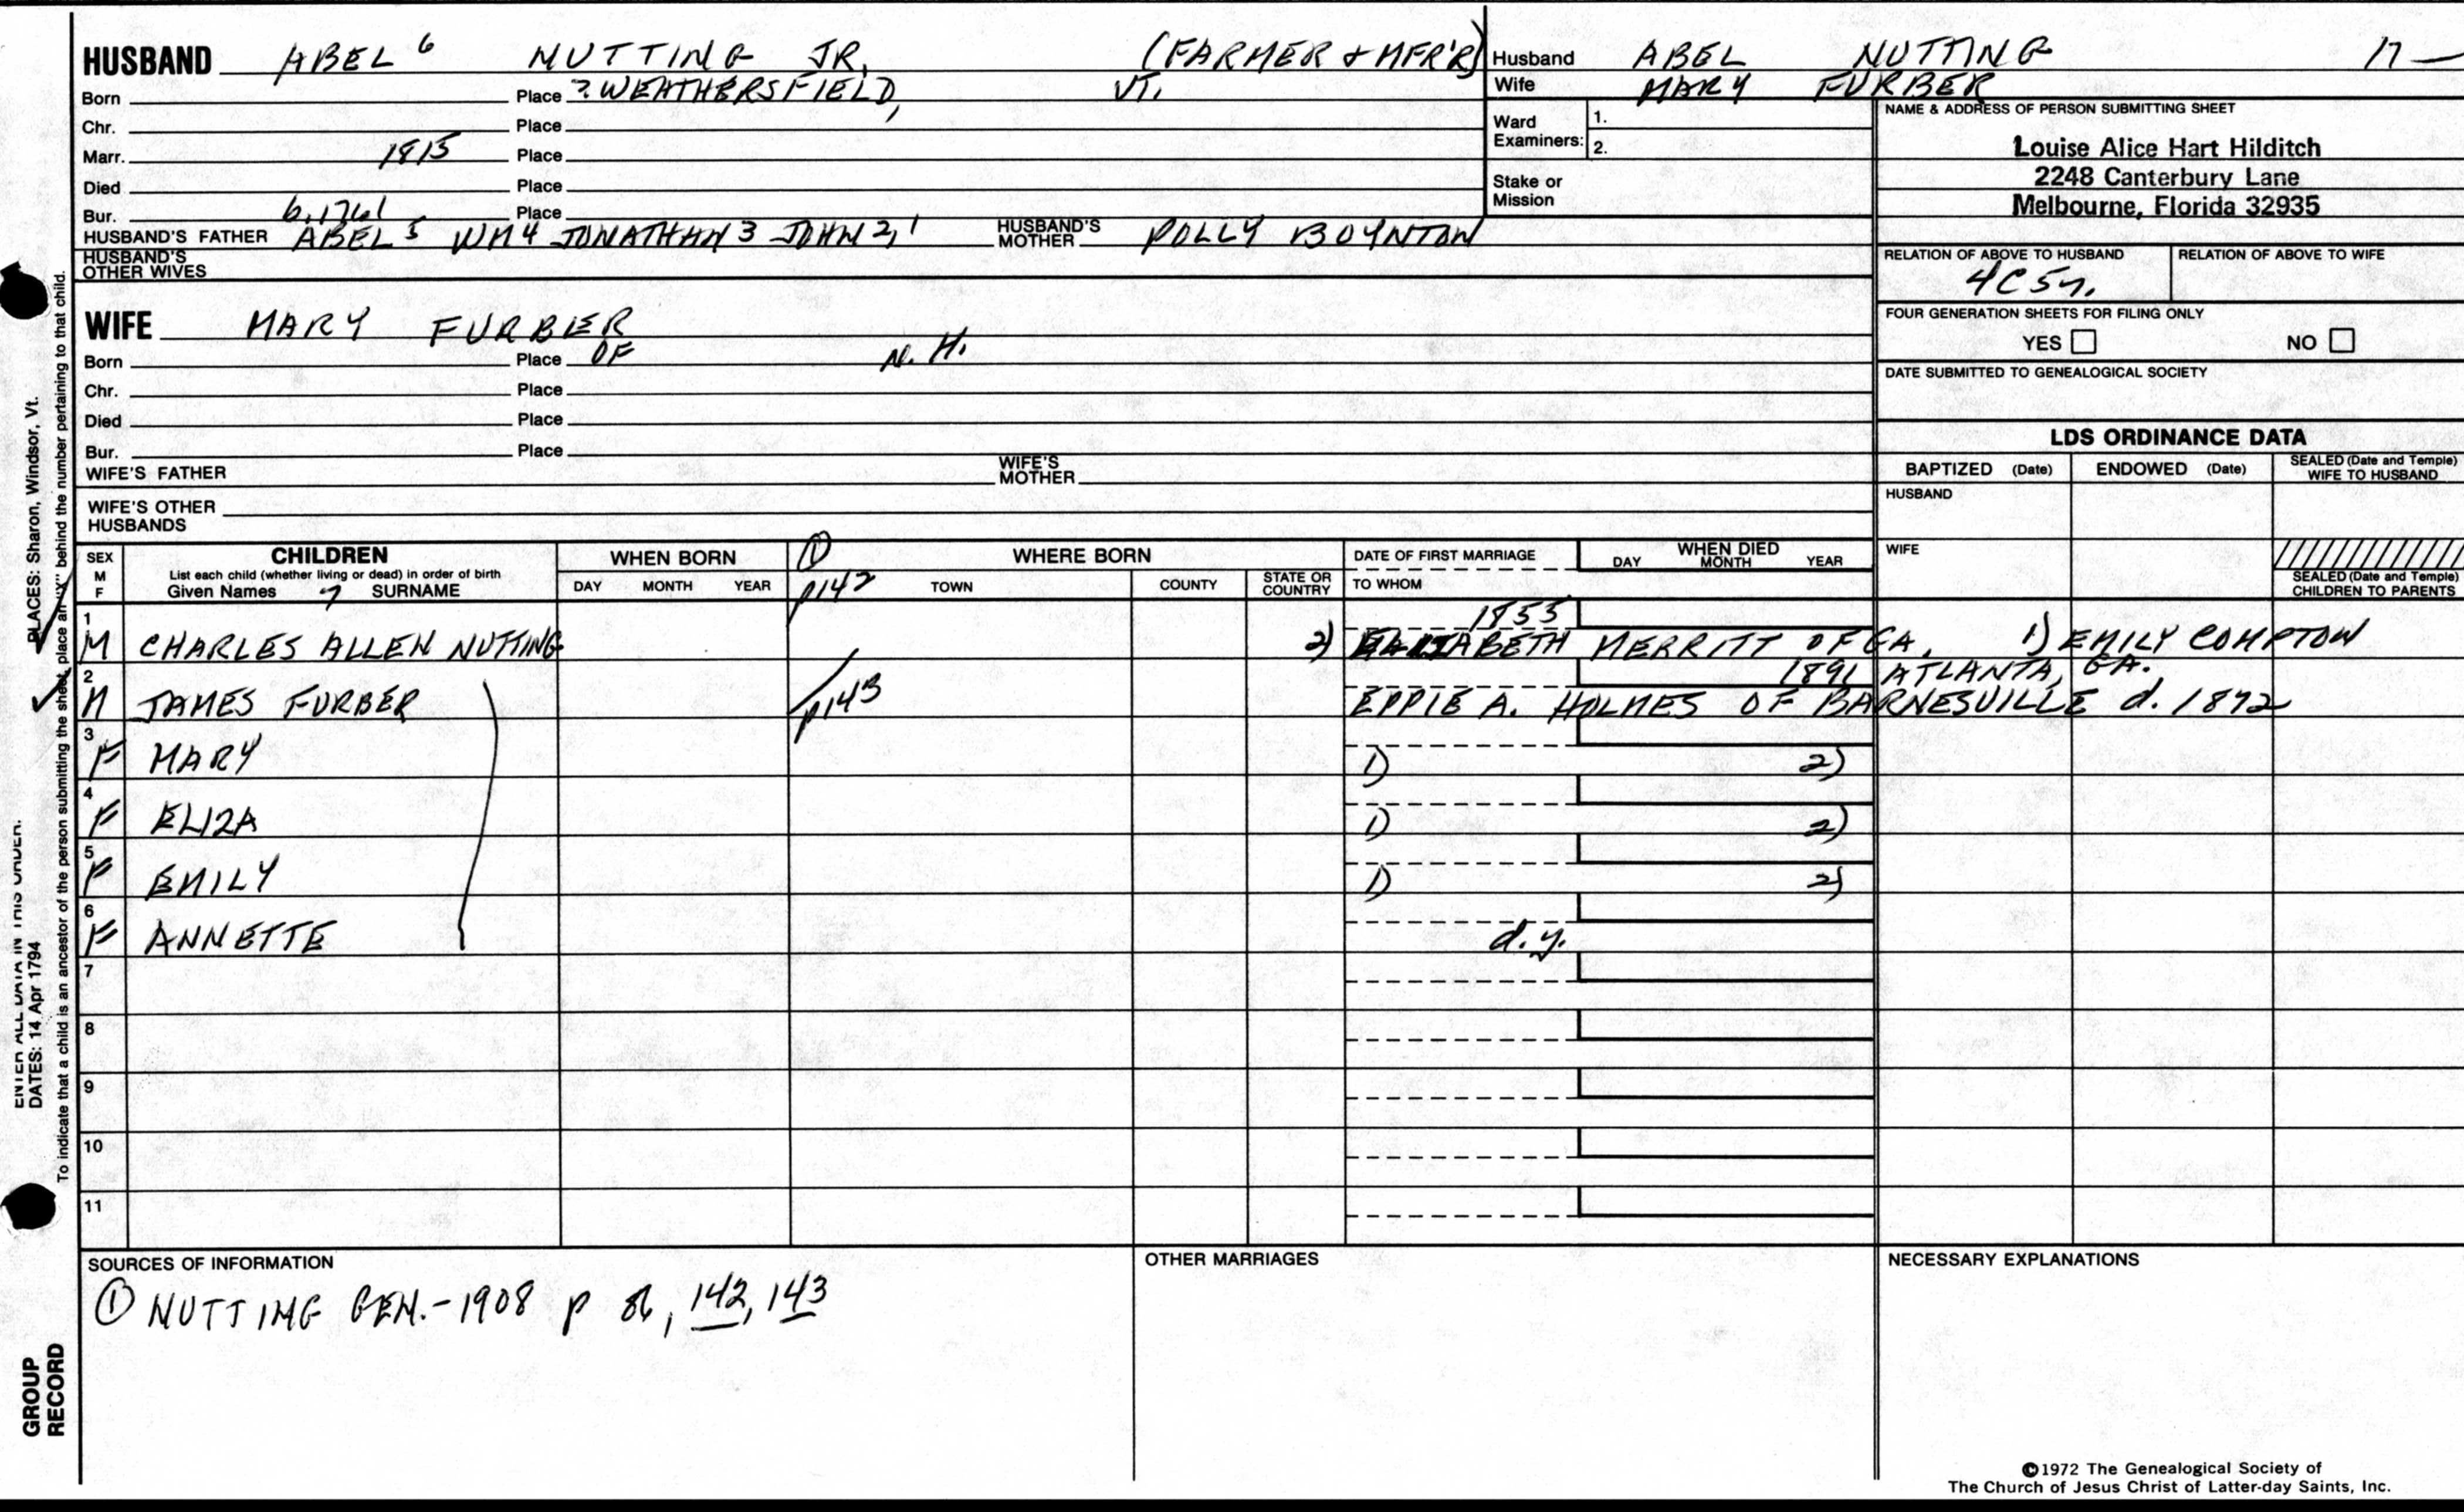 HUSBAND ABEL 6 NUTTING JR. (FARMER & MFR'R)
Born Place ? WEATHERSFIELD, VT.
Chr. Place
Marr. 1815 Place
Died Place
Bur. Place
b. 1761
HUSBAND'S FATHER ABEL 5 WM 4 JONATHAN 3 JOHN 2, 1 HUSBAND'S MOTHER POLLY BOYNTON
HUSBAND'S OTHER WIVES
WIFE MARY FURBER
Born Place OF N. H.
Chr. Place
Died Place
Bur. Place
WIFE'S FATHER WIFE'S MOTHER
WIFE'S OTHER HUSBANDS
Husband ABEL NUTTING 17 —
Wife MARY FURBER
Ward Examiners: 1.
2.
Stake or Mission
NAME & ADDRESS OF PERSON SUBMITTING SHEET
Louise Alice Hart Hilditch
2248 Canterbury Lane
Melbourne, Florida 32935
RELATION OF ABOVE TO HUSBAND RELATION OF ABOVE TO WIFE
4C5r.
FOUR GENERATION SHEETS FOR FILING ONLY
YES NO
DATE SUBMITTED TO GENEALOGICAL SOCIETY
LDS ORDINANCE DATA
BAPTIZED (Date) ENDOWED (Date) SEALED (Date and Temple) WIFE TO HUSBAND
HUSBAND
WIFE
SEALED (Date and Temple) CHILDREN TO PARENTS
SEX M F
CHILDREN
List each child (whether living or dead) in order of birth
Given Names 7 SURNAME
WHEN BORN
DAY MONTH YEAR
① WHERE BORN
p142 TOWN COUNTY STATE OR COUNTRY
DATE OF FIRST MARRIAGE
TO WHOM
WHEN DIED
DAY MONTH YEAR
1855
1 M CHARLES ALLEN NUTTING 2) ELIZABETH MERRITT OF GA. 1) EMILY COMPTON
1891 ATLANTA, GA.
2 M JAMES FURBER p143 EPPIE A. HOLMES OF BARNESVILLE d. 1892
3 F MARY 1) 2)
4 F ELIZA 1) 2)
5 F EMILY 1) 2)
6 F ANNETTE d.y.
7
8
9
10
11
SOURCES OF INFORMATION
① NUTTING GEN.-1908 p 86, 142, 143
OTHER MARRIAGES
NECESSARY EXPLANATIONS
©1972 The Genealogical Society of
The Church of Jesus Christ of Latter-day Saints, Inc.
DATES: 14 Apr 1794
PLACES: Sharon, Windsor, Vt.
To indicate that a child is an ancestor of the person submitting the sheet, place an "X" behind the number pertaining to that child.
GROUP RECORD